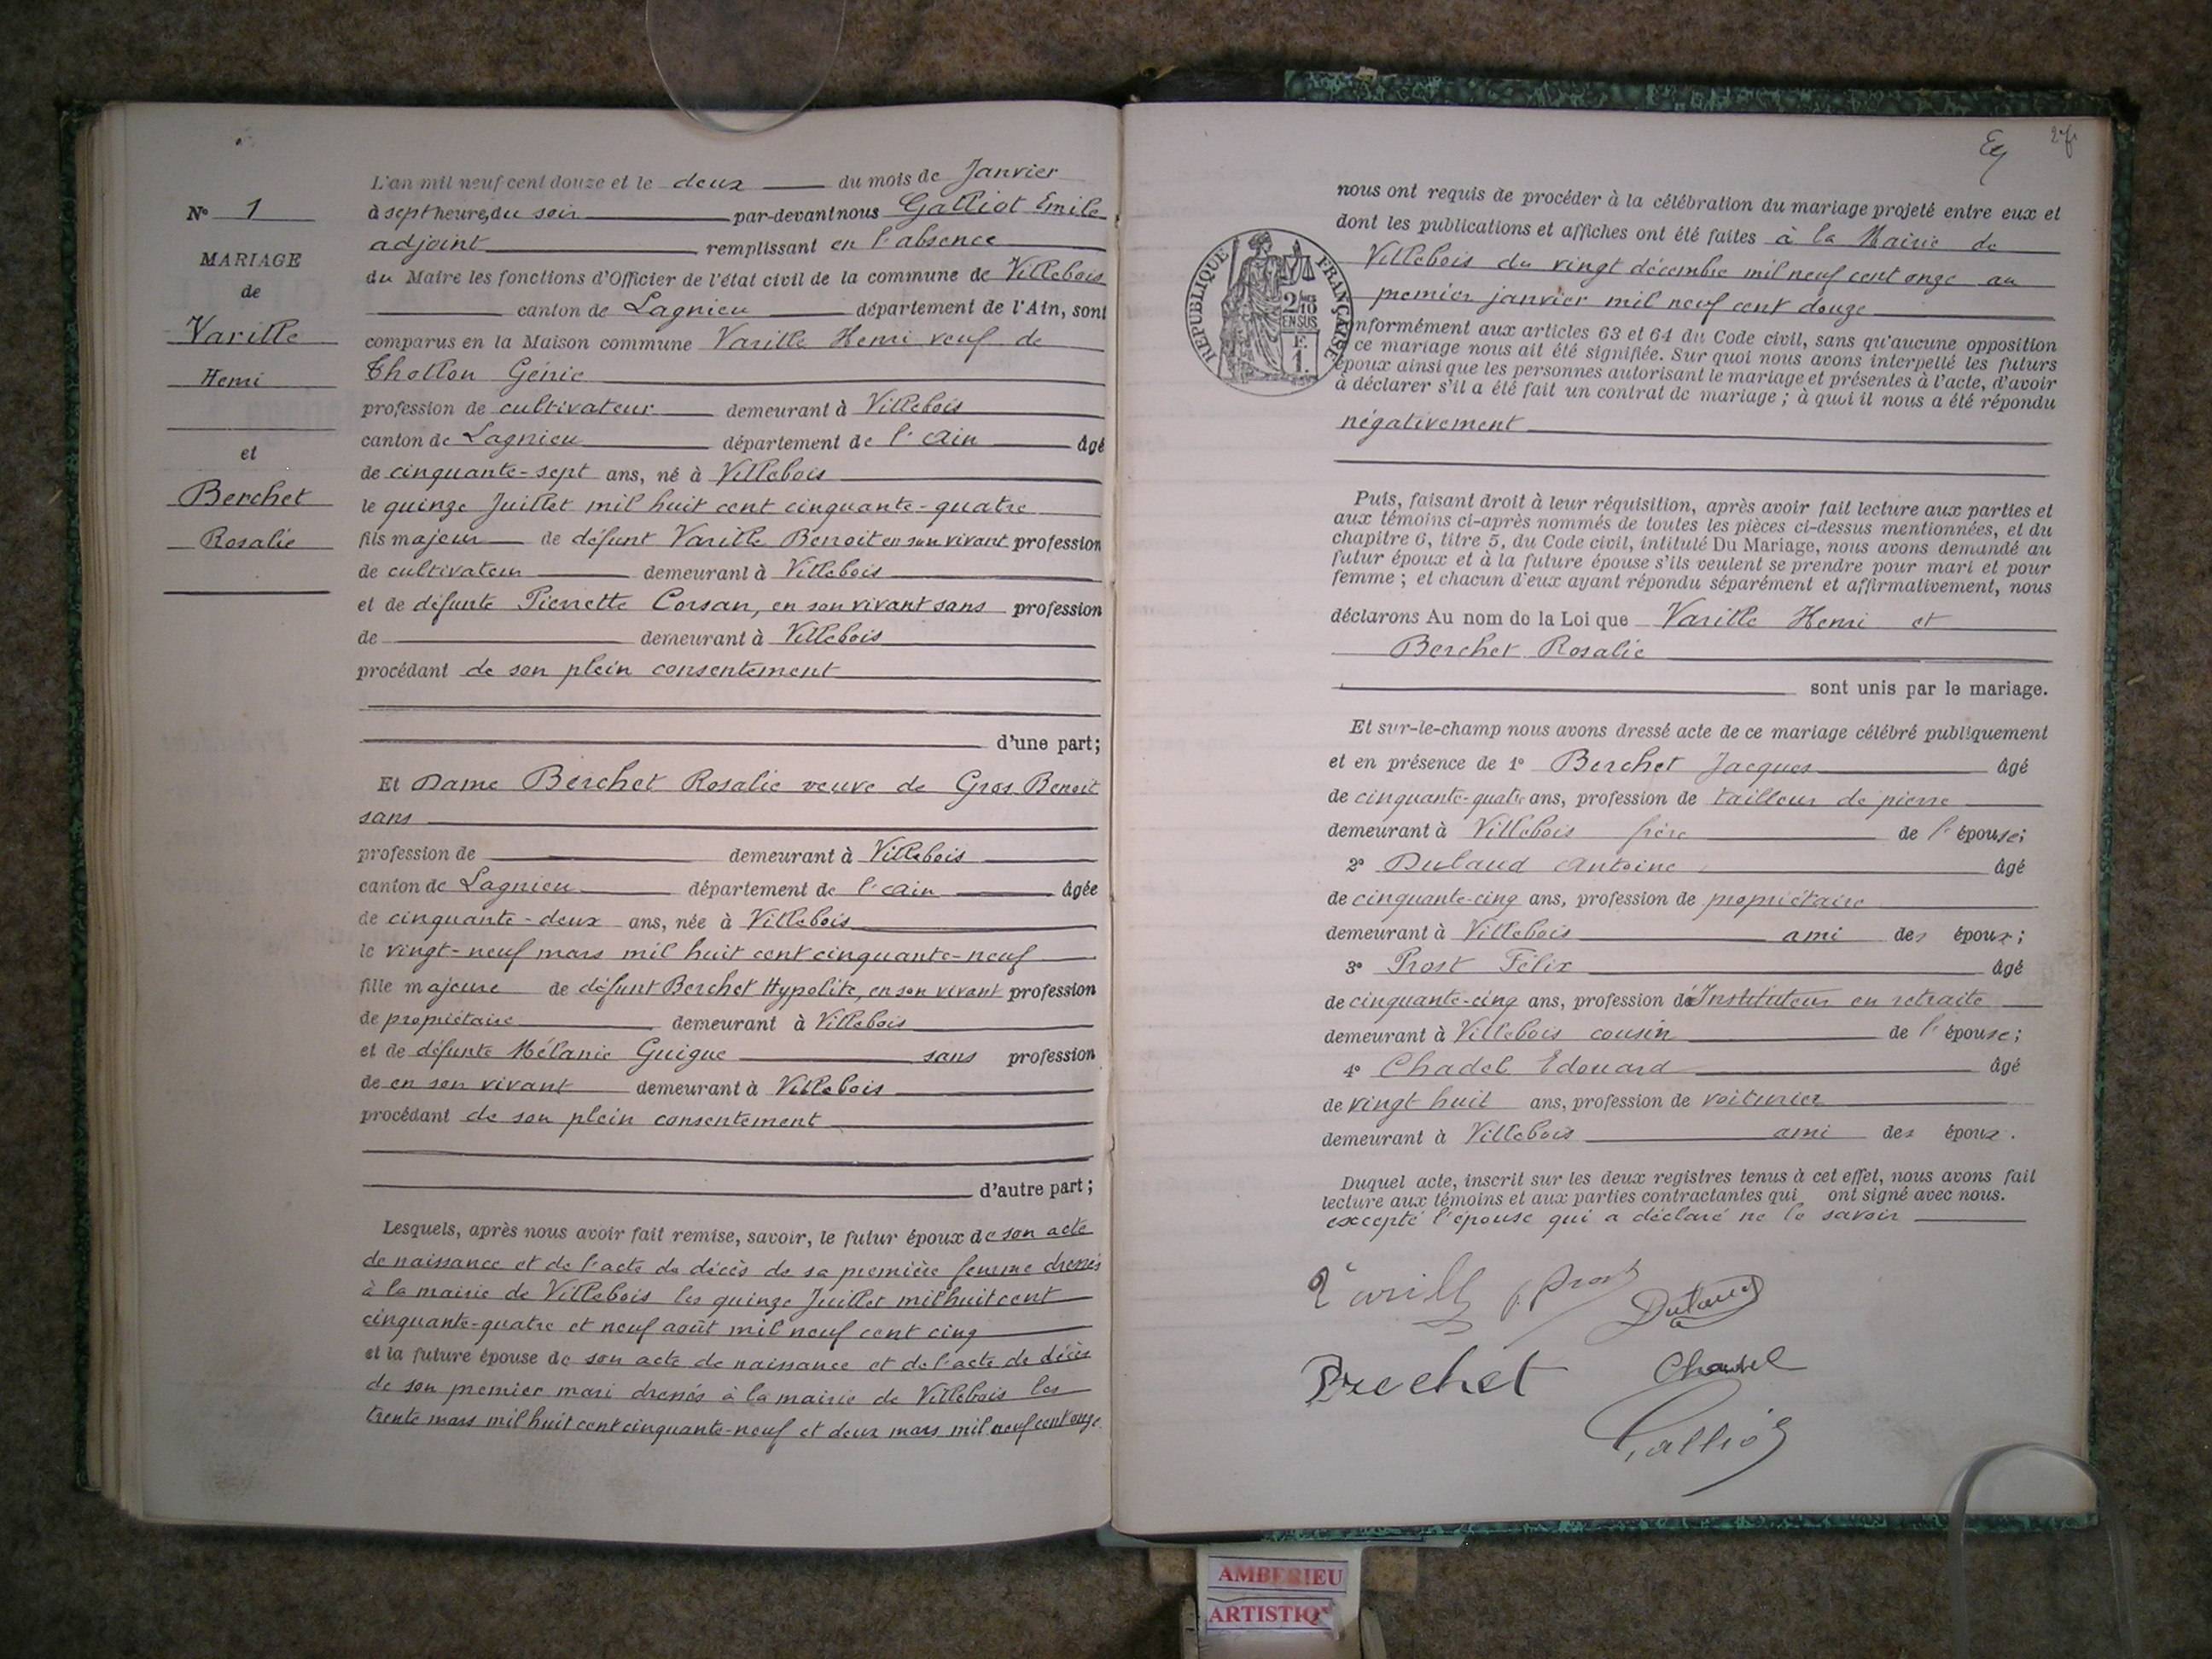 L'an mil neuf cent douze et le deux du mois de Janvier
N° 1
à sept heures du soir par-devant nous Galliot Emile
adjoint remplissant en l'absence
MARIAGE
du Maire les fonctions d'Officier de l'état civil de la commune de Villebois
de
canton de Lagnieu département de l'Ain, sont
Varille
comparus en la Maison commune Varille Henri veuf de
Henri
Thollon Génie
profession de cultivateur demeurant à Villebois
canton de Lagnieu département de l'Ain âgé
et
de cinquante-sept ans, né à Villebois
Berchet
le quinze Juillet mil huit cent cinquante-quatre
Rosalie
fils majeur de défunt Varille Benoit en son vivant profession
de cultivateur demeurant à Villebois
et de défunte Pierrette Corsan, en son vivant sans profession
de demeurant à Villebois
procédant de son plein consentement
d'une part;
Et Dame Berchet Rosalie veuve de Gros Benoit
sans
profession de demeurant à Villebois
canton de Lagnieu département de l'Ain âgée
de cinquante-deux ans, née à Villebois
le vingt-neuf mars mil huit cent cinquante-neuf
fille majeure de défunt Berchet Hypolite, en son vivant profession
de propriétaire demeurant à Villebois
et de défunte Mélanie Guigue sans profession
de en son vivant demeurant à Villebois
procédant de son plein consentement
d'autre part;
Lesquels, après nous avoir fait remise, savoir, le futur époux de son acte
de naissance et de l'acte de décès de sa première femme dressés
à la mairie de Villebois les quinze Juillet mil huit cent
cinquante-quatre et neuf août mil neuf cent cinq
et la future épouse de son acte de naissance et de l'acte de décès
de son premier mari dressés à la mairie de Villebois les
trente mars mil huit cent cinquante-neuf et deux mars mil neuf cent onze.
nous ont requis de procéder à la célébration du mariage projeté entre eux et
dont les publications et affiches ont été faites à la Mairie de
Villebois du vingt décembre mil neuf cent onze au
premier janvier mil neuf cent douze
RÉPUBLIQUE FRANÇAISE
2/10
EN SUS
F.
1.
nformément aux articles 63 et 64 du Code civil, sans qu'aucune opposition
ce mariage nous ait été signifiée. Sur quoi nous avons interpellé les futurs
époux ainsi que les personnes autorisant le mariage et présentes à l'acte, d'avoir
à déclarer s'il a été fait un contrat de mariage; à quoi il nous a été répondu
négativement
Puis, faisant droit à leur réquisition, après avoir fait lecture aux parties et
aux témoins ci-après nommés de toutes les pièces ci-dessus mentionnées, et du
chapitre 6, titre 5, du Code civil, intitulé Du Mariage, nous avons demandé au
futur époux et à la future épouse s'ils veulent se prendre pour mari et pour
femme; et chacun d'eux ayant répondu séparément et affirmativement, nous
déclarons Au nom de la Loi que Varille Henri et
Berchet Rosalie
sont unis par le mariage.
Et sur-le-champ nous avons dressé acte de ce mariage célébré publiquement
et en présence de 1° Berchet Jacques âgé
de cinquante-quatre ans, profession de tailleur de pierre
demeurant à Villebois frère de l'épouse;
2° Dulaud Antoine âgé
de cinquante-cinq ans, profession de propriétaire
demeurant à Villebois ami des époux;
3° Prost Félix âgé
de cinquante-cinq ans, profession d'Instituteur en retraite
demeurant à Villebois cousin de l'épouse;
4° Chadel Edouard âgé
de vingt huit ans, profession de voiturier
demeurant à Villebois ami des époux.
Duquel acte, inscrit sur les deux registres tenus à cet effet, nous avons fait
lecture aux témoins et aux parties contractantes qui ont signé avec nous.
excepté l'épouse qui a déclaré ne le savoir
Varille f. Prost
Dulaud
Brechet
Chadel
Galliot
AMBERIEU
ARTISTIQ